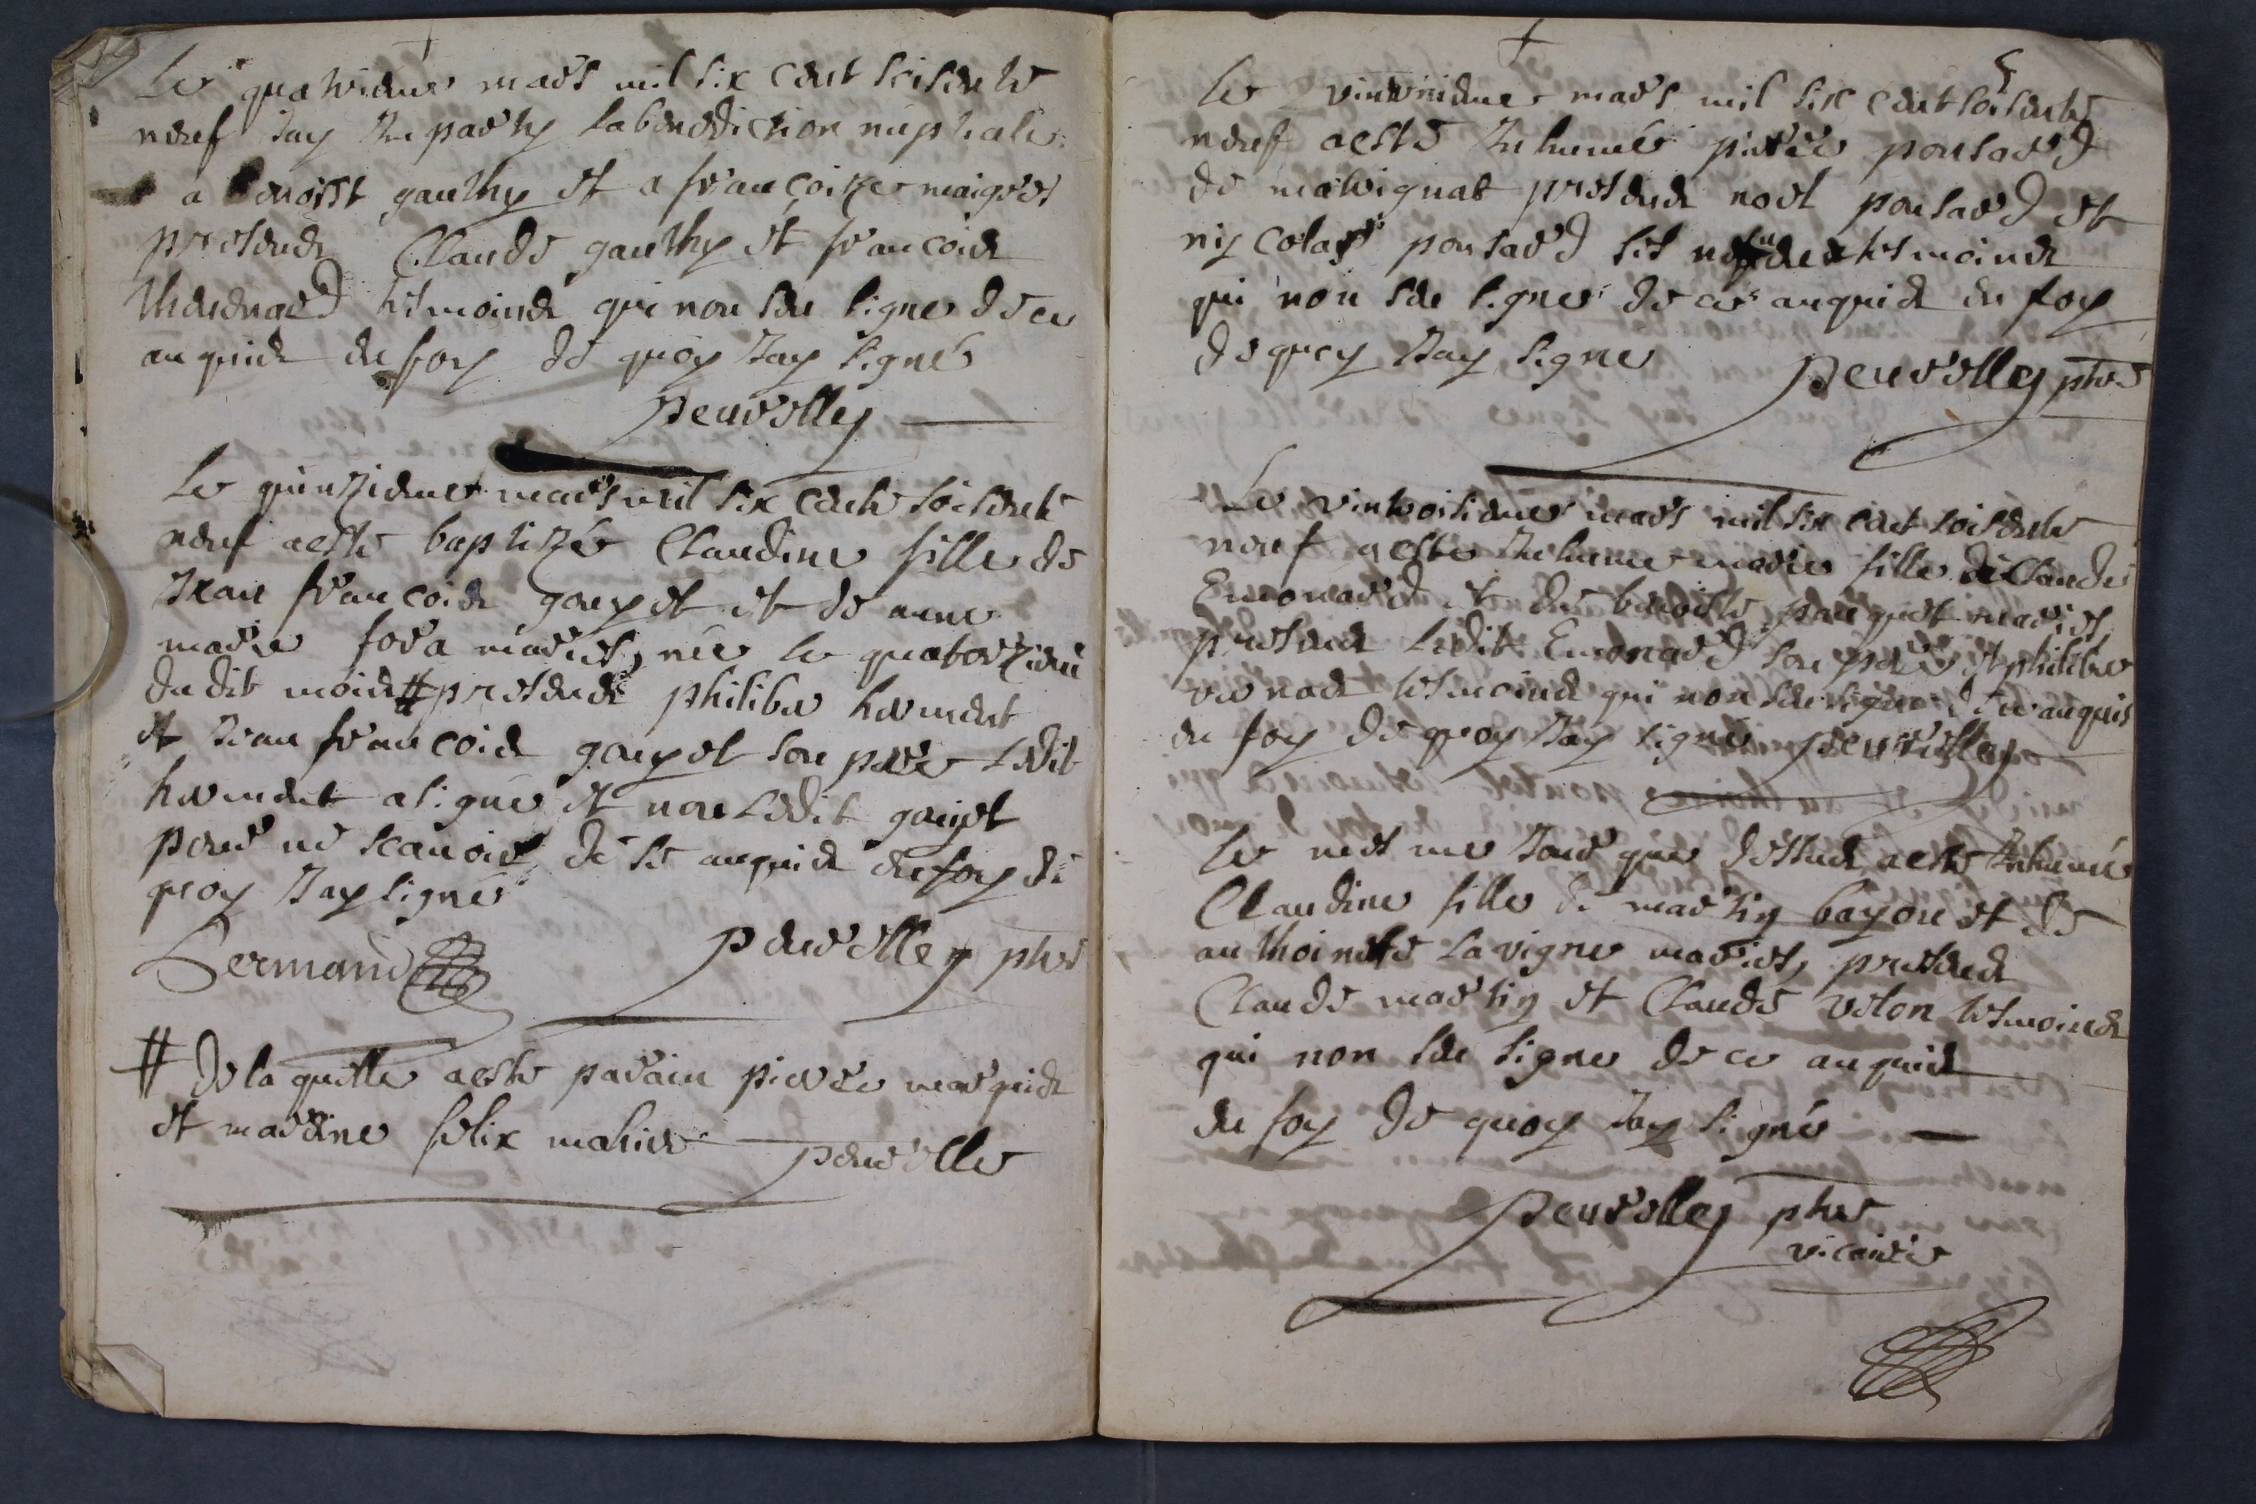 Le quatrieme mars mil six cent soisente
neuf Jay Inparty la benediction nuptiale
a benoist gauthy et a francoize maigret
presents Claude gauthy et francois
thevenard tesmoins qui non sceu signe de ce
anquis en foy de quoy Jay signé
perrelley
Le quinzieme mars mil six cents soisente
neuf a esté baptizée Claudine fille de
Jean francois goyet et de anne
marie fora mariés, née le quatorzieme
dudit mois # presents philibe herment
et Jean francois goyet son pere Ledit
herment a signé et non Ledit goyet
pere ne scavoir de ce anquis en foy de
quoy Jay signé
Hermand
perrelley ptre
# de la quelle a esté parain pierre marquis
et mareine felix matier perrelle
+
5
Le vintunieme mars mil six cent soisente
neuf a esté Inhumé pierre ponsard
de matrignat presents noel ponsard et
nycolas ponsard ses nepveux tesmoins
qui non sceu signe de ce anquis en foy
de quoy Jay signe perrelley ptre
Le vintroisieme mars mil six cent soisente
neuf a esté Inhumé marie fille de Claude
Emonard et de benoiste paquet mariés
presents Ledit Emonard son pere et philibe
tesmoins qui non sceu signe de ce anquis
en foy de quoy Jay signé perrelley
Le mesme Jour que dessus a esté Inhumé
Claudine fille de martin bayon et de
anthoinete lavigne mariés, presents
Claude martin et Claude velon tesmoins
qui non sceu signe de ce anquis
en foy de quoy Jay signé
perrelley ptre
vicaire